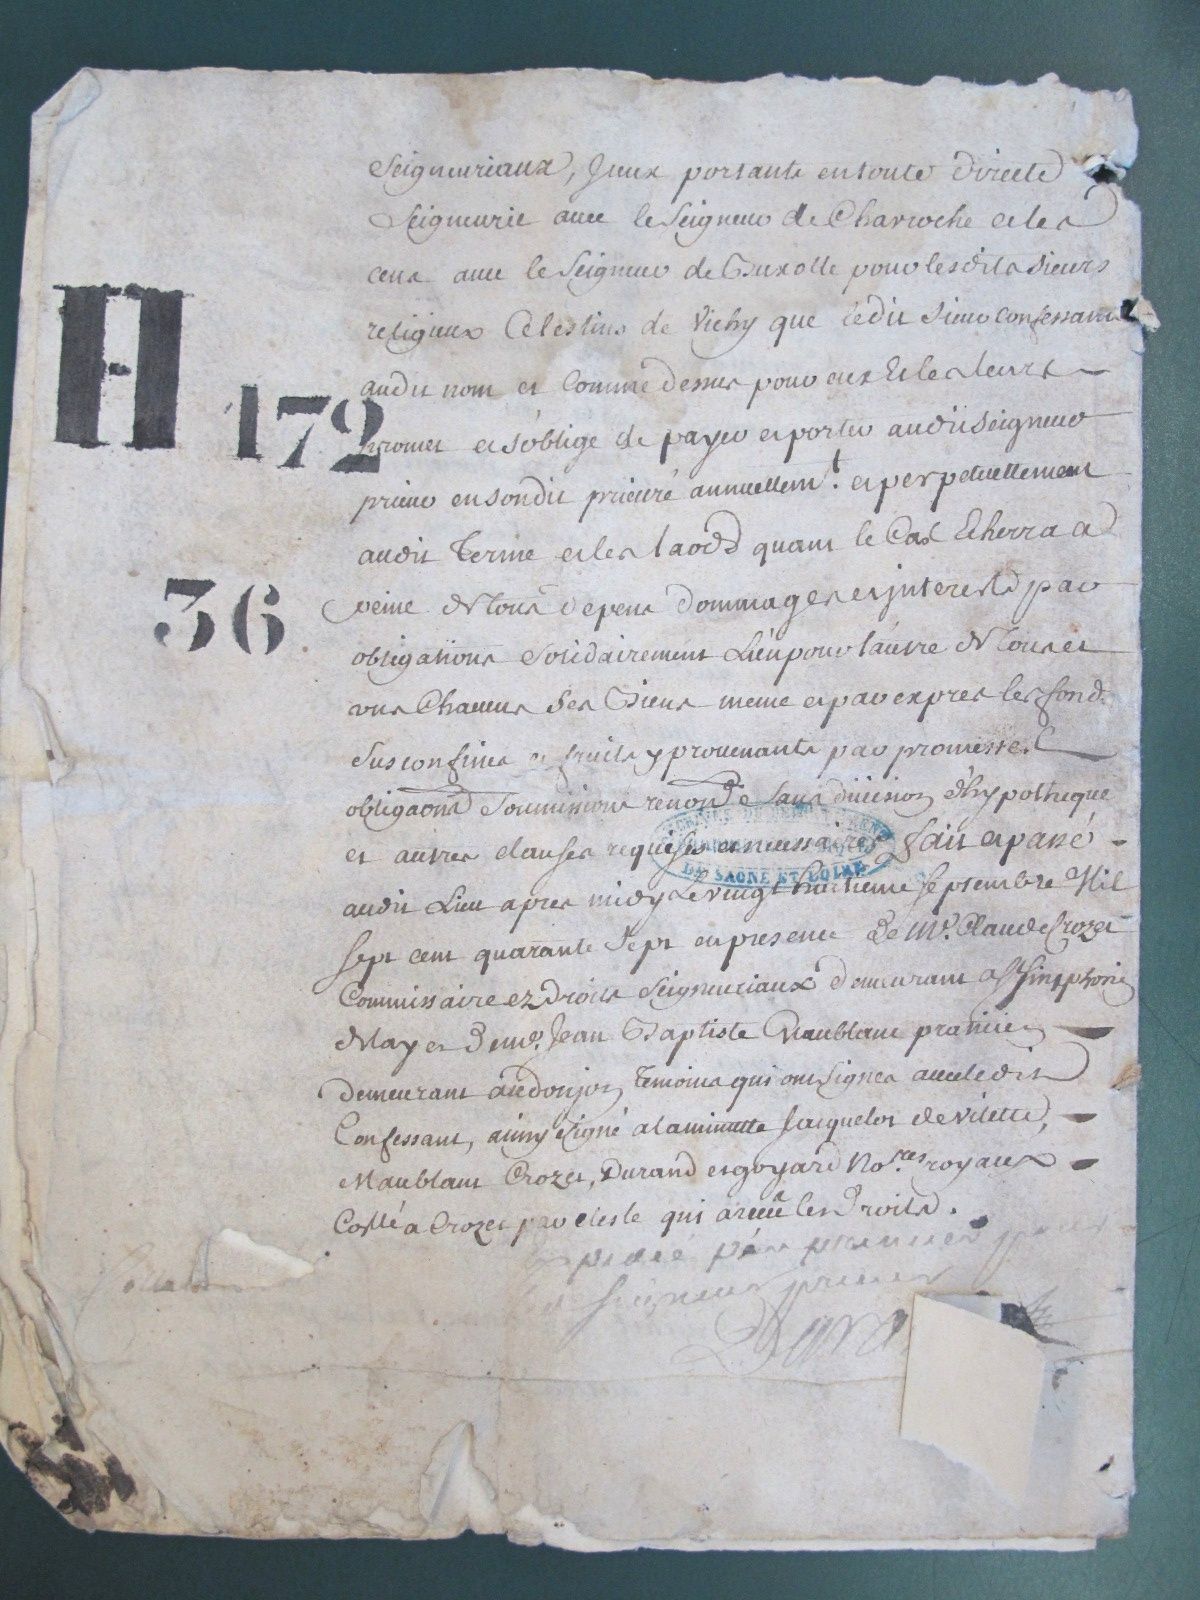 Seigneuriaux, Iceux portants en toute directe
Seigneurie avec le Seigneur de Charroche et les
cens avec le Seigneur de pour lesdits Sieurs
religieux Celestins de Vichy que ledit Sieur confessant
audit nom et Comme dessus pour eux Et les leurs
promet et s'oblige de payer et porter audit Seigneur
prieur en sondit prieuré annuellemt. et perpetuellement
audit Terme et les laods quant le Cas Eherra a
peine de tous depens dommages et jnterests par
obligations Solidairement Lun pour lautre de tous et
uns Chacuns Ses biens meme et par expres les fonds
Susconfines et fruits y provenants par promesses
obligaons Soumissions renonons Sans division d'hypotheque
et autres clauses requises et necessaires, fait et passé
audit Lieu apres midy Le vingt huitieme Septembre Mil
Sept cent quarante Sept en presence de Me. Claude Crozet
Commissaire ez Droits Seigneuriaux demeurant a St Simphorie
de Lay et de me. Jean Baptiste Maublanc praticien
demeurant au donjon temoins qui ont Signes avec ledit
Confessant, ainsy Signé a la minutte Jacquelot de Vilette,
Maublanc Crozet, Durand et goyard Nores. royaux
Collé a Crozet par qui a receu les Droits.
Expedié pour premiere pour
le Seigneur prieur
H 172
36
ARCHIVES
DE SAONE ET LOIRE